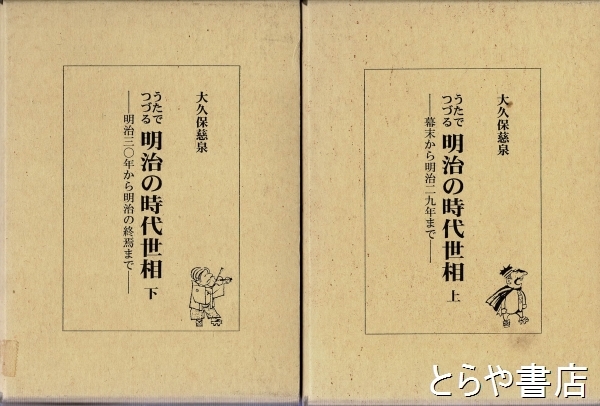 大久保慈泉
うたで
つづる
明治の時代世相 上
――幕末から明治二九年まで――
大久保慈泉
うたで
つづる
明治の時代世相 下
――明治三〇年から明治の終焉まで――
とらや書店